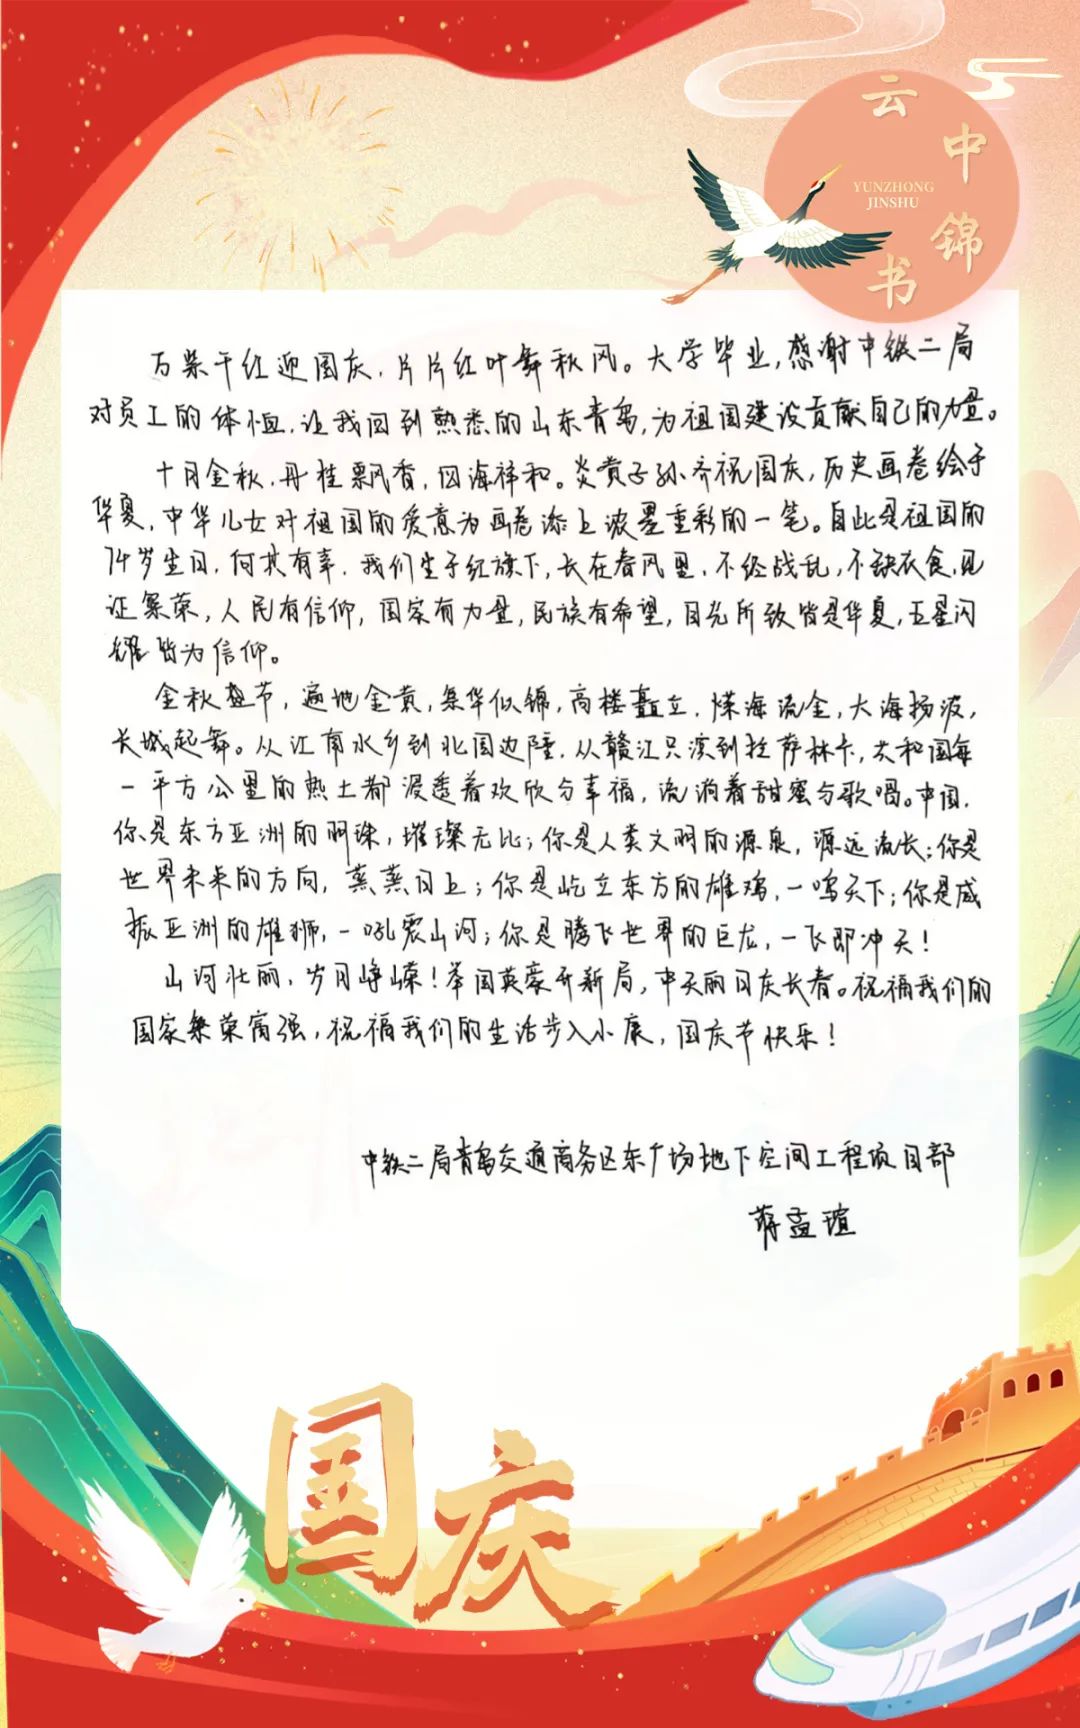 云中锦书
YUNZHONG
JINSHU
万紫千红迎国庆，片片红叶舞秋风。大学毕业，感谢中铁二局
对员工的体恤，让我回到熟悉的山东青岛，为祖国建设贡献自己的力量。
十月金秋，丹桂飘香，四海祥和。炎黄子孙齐祝国庆，历史画卷绘于
华夏，中华儿女对祖国的爱意为画卷添上浓墨重彩的一笔。自此是祖国的
74岁生日，何其有幸，我们生于红旗下，长在春风里，不经战乱，不缺衣食，见
证繁荣，人民有信仰，国家有力量，民族有希望，目光所致皆是华夏，五星闪
耀皆为信仰。
金秋盛节，遍地金黄，繁华似锦，高楼矗立，煤海流金，大海扬波，
长城起舞。从江南水乡到北国边陲，从赣江只滨到拉萨林卡，共和国每
一平方公里的热土都浸透着欢欣与幸福，流淌着甜蜜与歌唱。中国，
你是东方亚洲的明珠，璀璨无比；你是人类文明的源泉，源远流长；你是
世界未来的方向，蒸蒸日上；你是屹立东方的雄鸡，一鸣天下；你是威
振亚洲的雄狮，一吼震山河；你是腾飞世界的巨龙，一飞即冲天！
山河壮丽，岁月峥嵘！举国英豪开新局，中天丽日庆长春。祝福我们的
国家繁荣富强，祝福我们的生活步入小康，国庆节快乐！
中铁二局青岛交通商务区东广场地下空间工程项目部
蒋孟瑄
国庆